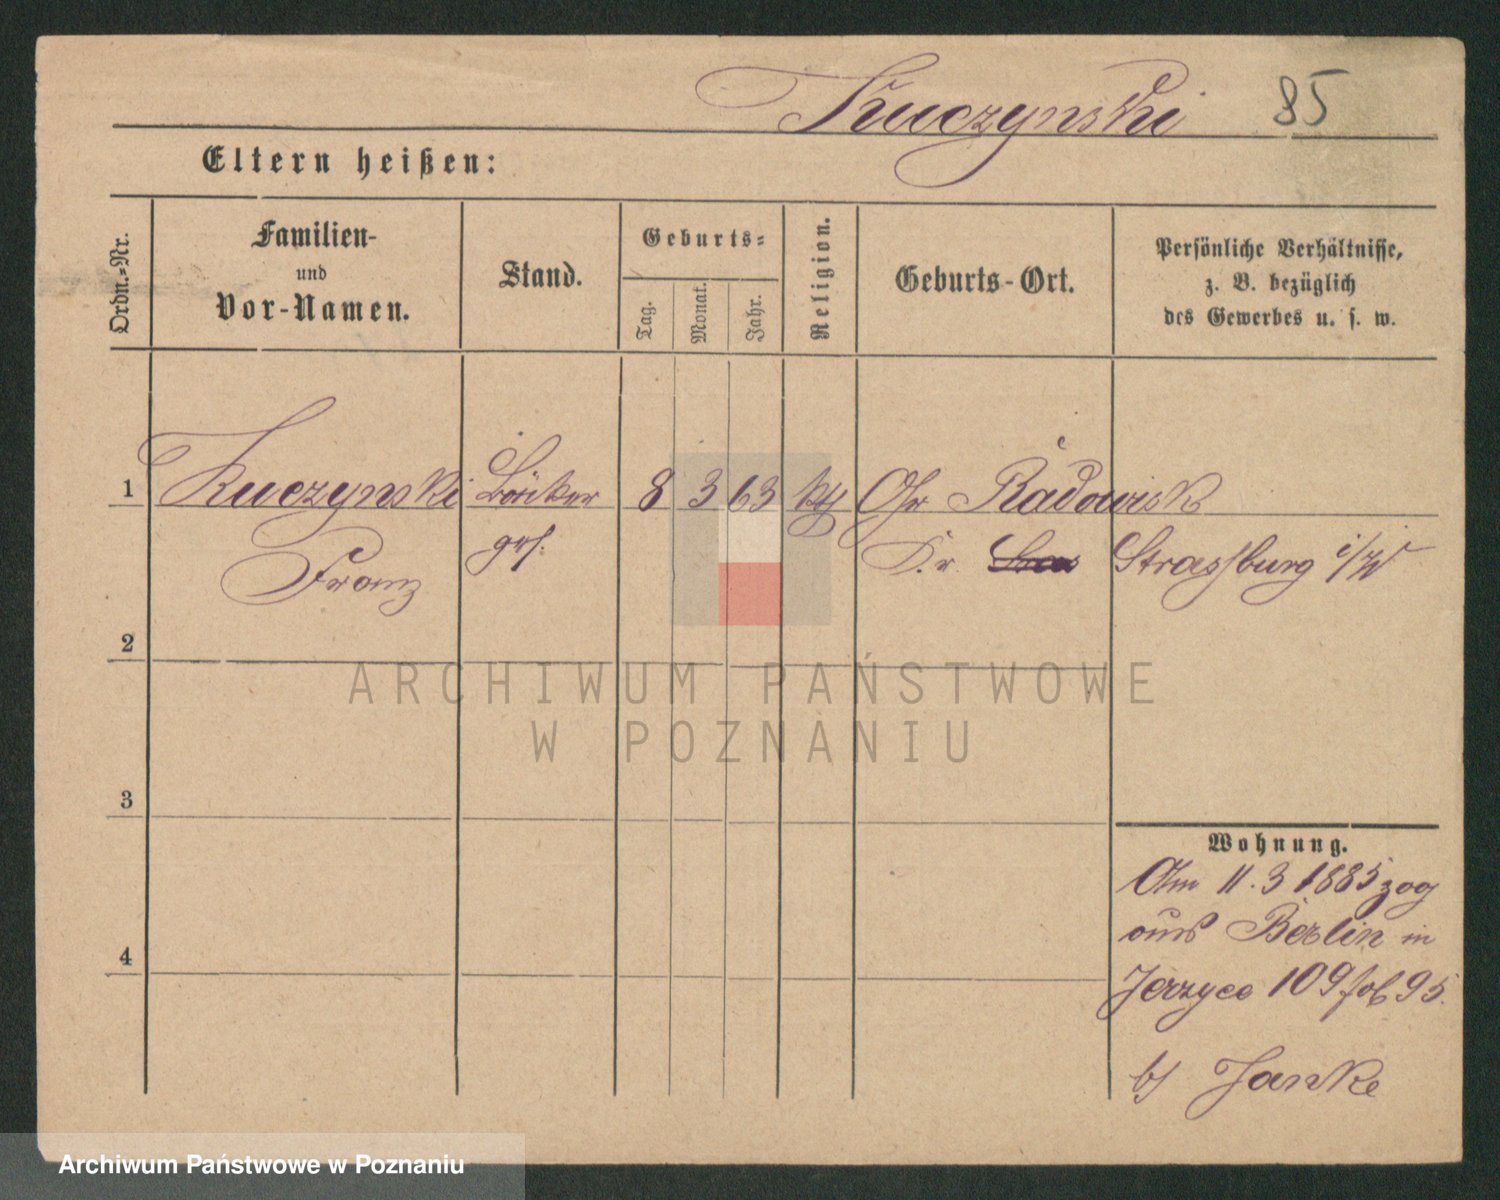 Kuczynski 85
Eltern heißen:
Ordn.-Nr.
Familien-
und
Vor-Namen.
Stand.
Geburts-
Tag.
Monat.
Jahr.
Religion.
Geburts-Ort.
Persönliche Verhältnisse,
z. B. bezüglich
des Gewerbes u. s. w.
1 Kuczynski Böttcher 8 3 63 kth Radowisk
Franz ges. Kr. Strassburg i/W
2
3
4
Wohnung.
Am 11.3 1885 zog
aus Berlin in
Jerzyce 109 fol 95.
b/ Janke
ARCHIWUM PAŃSTWOWE
W POZNANIU
Archiwum Państwowe w Poznaniu